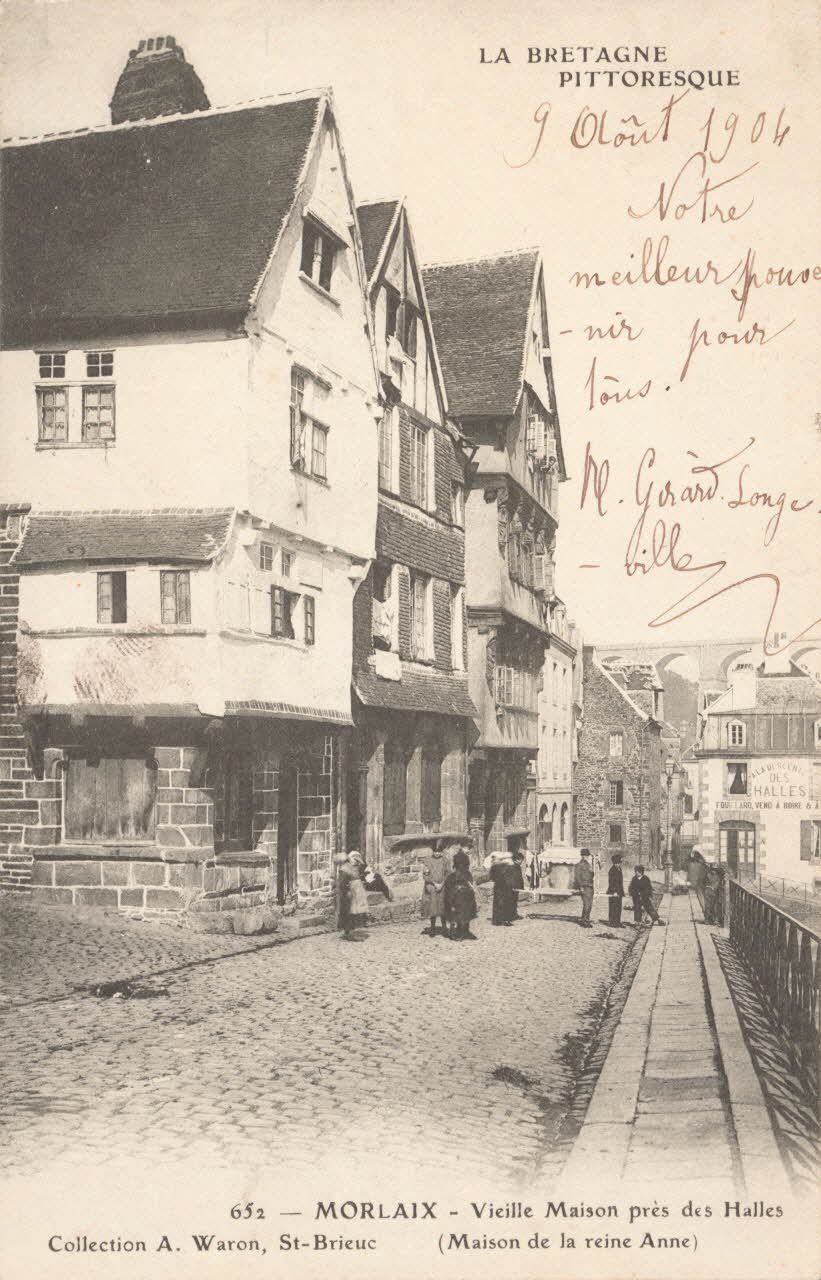 LA BRETAGNE
PITTORESQUE
9 Août 1904
Notre
meilleur souve
-nir pour
tôus.
M. Girard. Longe
-ville
A LA DESCENTE
DES
HALLES
FOUILLARD, VEND À BOIRE & À
652 — MORLAIX - Vieille Maison près des Halles
Collection A. Waron, St-Brieuc (Maison de la reine Anne)